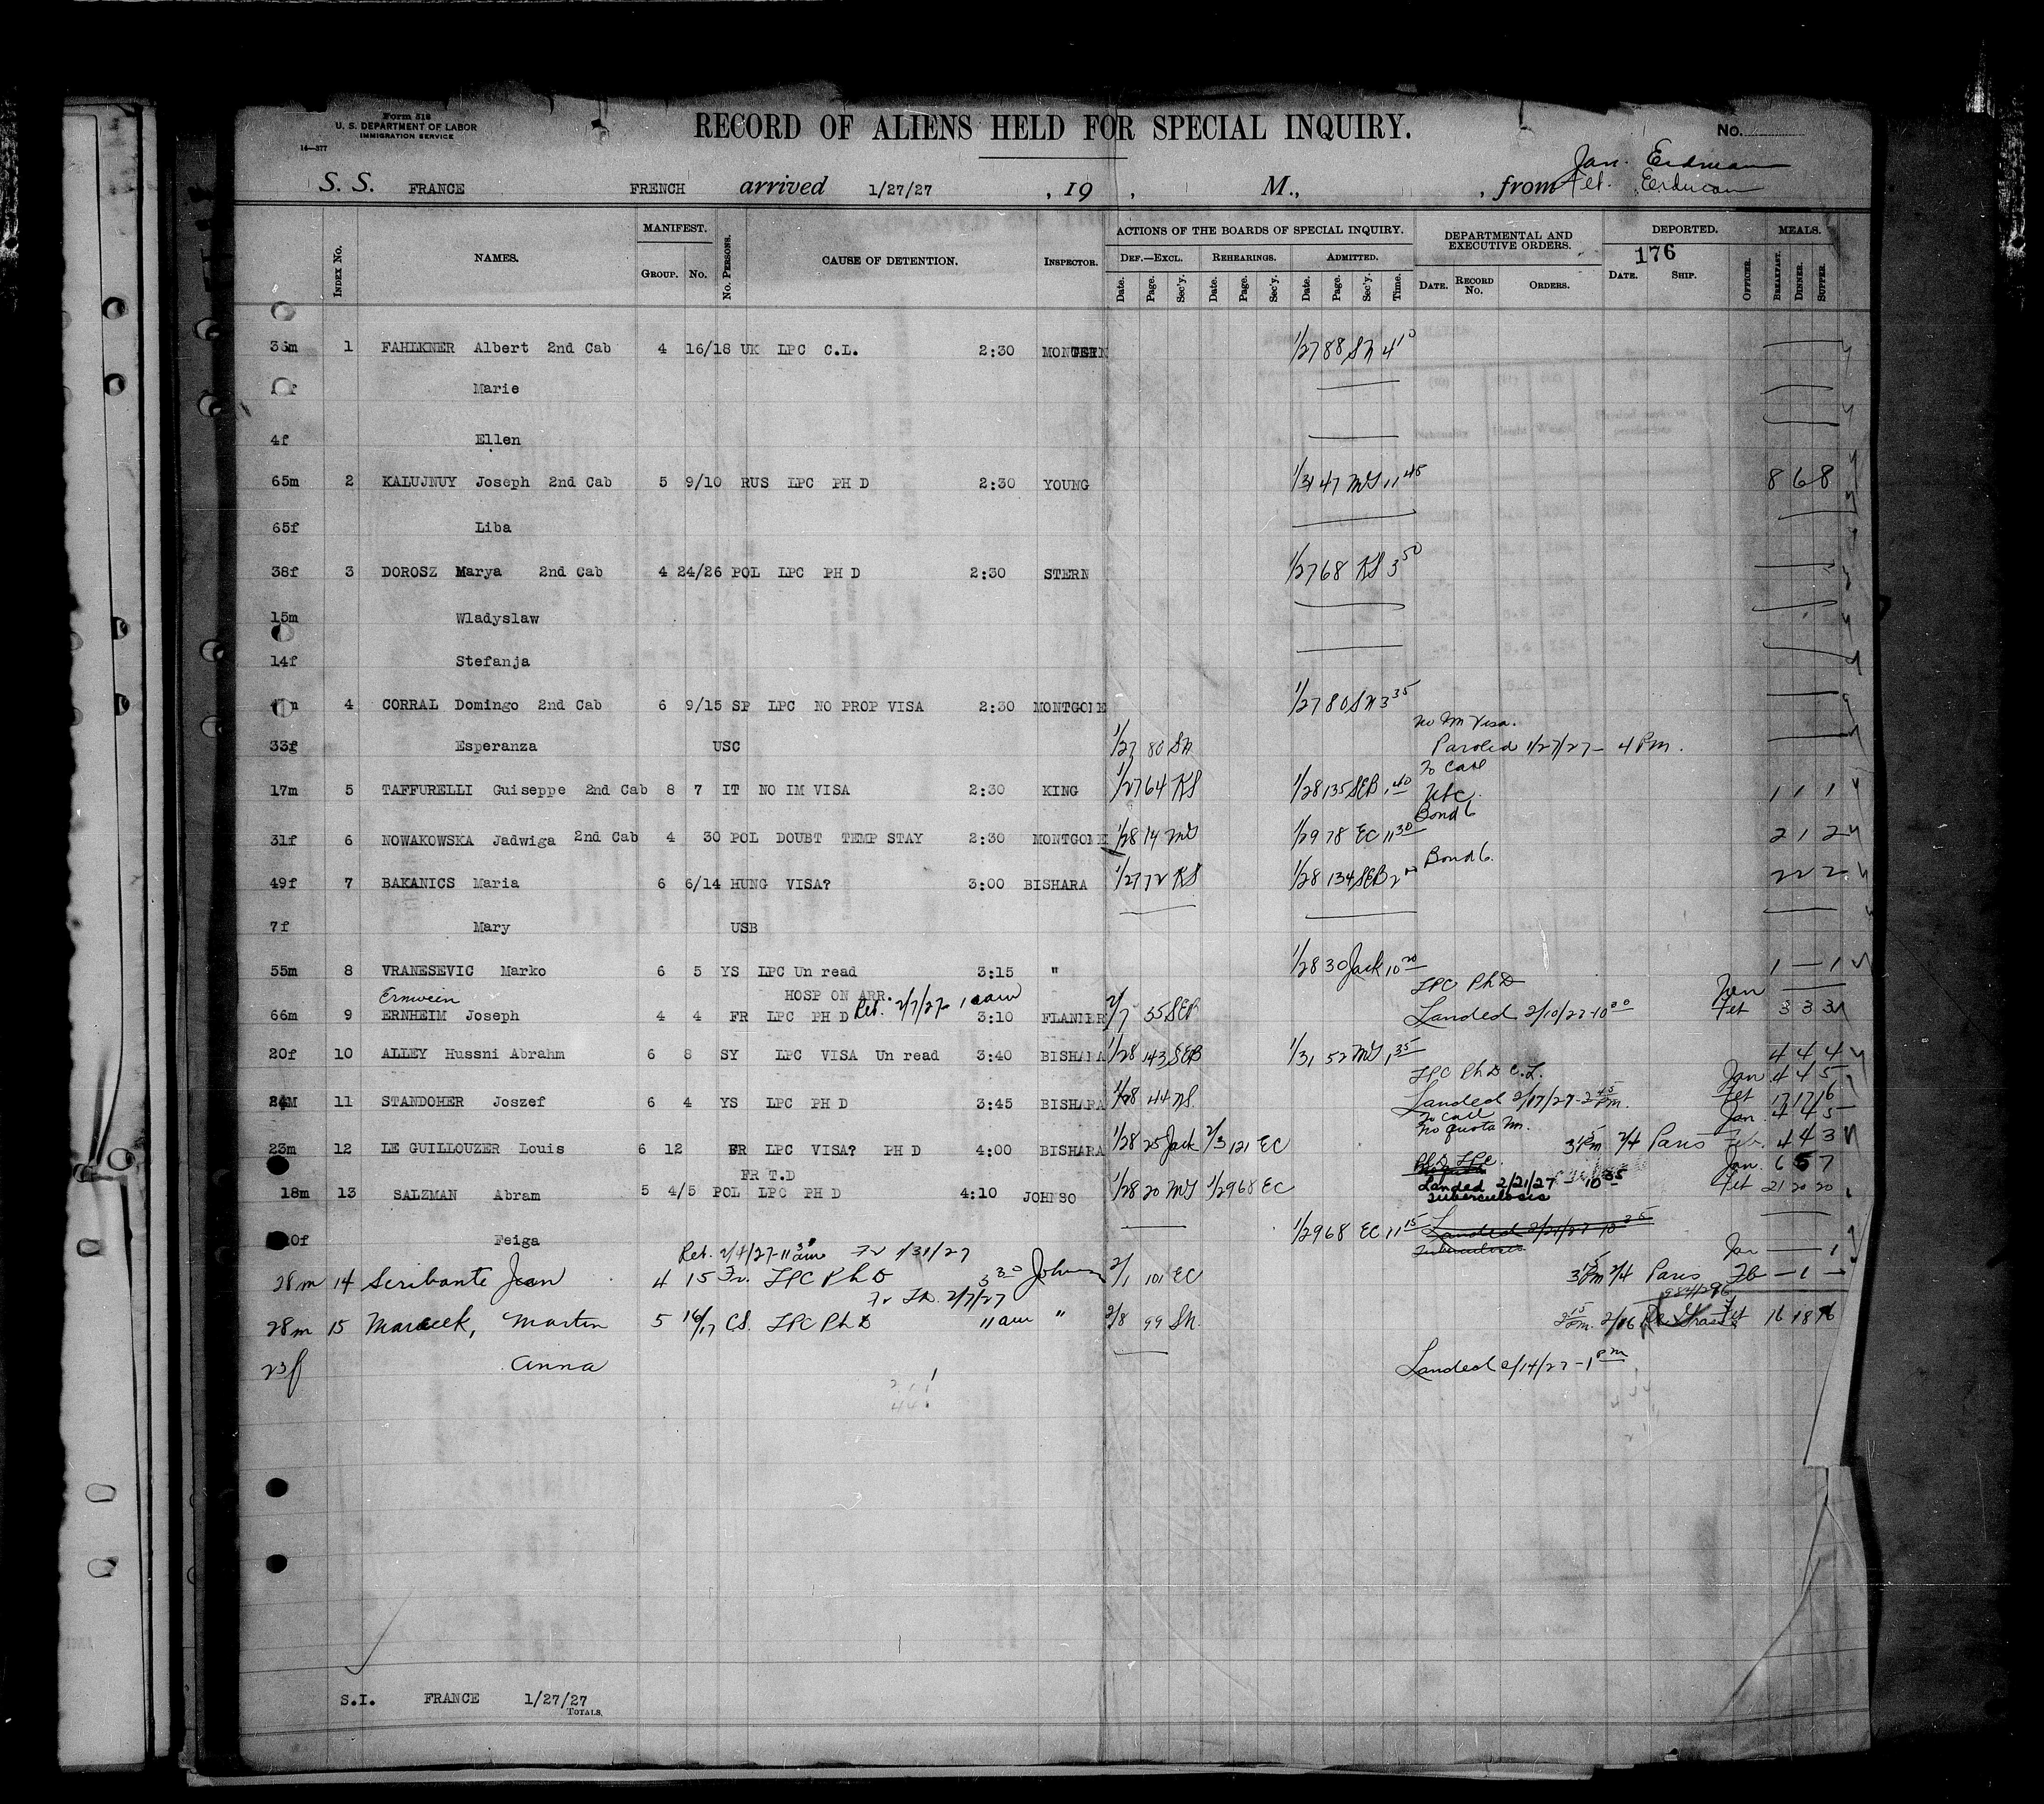 Form 518
U. S. DEPARTMENT OF LABOR
IMMIGRATION SERVICE
16—377
RECORD OF ALIENS HELD FOR SPECIAL INQUIRY.
No.
Jan. Erdman
S. S. FRANCE FRENCH arrived 1/27/27 , 19 , M., , from Fet. Erdman
INDEX NO. NAMES. MANIFEST. GROUP. NO. NO. PERSONS. CAUSE OF DETENTION. INSPECTOR. ACTIONS OF THE BOARDS OF SPECIAL INQUIRY. DEPARTMENTAL AND EXECUTIVE ORDERS. DEPORTED. MEALS.
176
DEF.—EXCL. REHEARINGS. ADMITTED.
Date. Page. Sec'y. Date. Page. Sec'y. Date. Page. Sec'y. Time. DATE. RECORD NO. ORDERS. DATE. SHIP. OFFICER. BREAKFAST. DINNER. SUPPER.
36m 1 FAHLKNER Albert 2nd Cab 4 16/18 UK LPC C.L. 2:30 1/27 88 SN 4 10
Marie
4f Ellen
65m 2 KALUJNUY Joseph 2nd Cab 5 9/10 RUS LPC PH D 2:30 YOUNG 1/31 47 MG 11 45 8 6 8
65f Liba
38f 3 DOROSZ Marya 2nd Cab 4 24/26 POL LPC PH D 2:30 STERN 1/27 68 KS 3 50
15m Wladyslaw
14f Stefanja
4 CORRAL Domingo 2nd Cab 6 9/15 SP LPC NO PROP VISA 2:30 MONTGOME 1/27 80 SN 3 35
No Im Visa.
33f Esperanza USC 1/27 80 SN Paroled 1/27/27 - 4 Pm.
To Call
17m 5 TAFFURELLI Guiseppe 2nd Cab 8 7 IT NO IM VISA 2:30 KING 1/27 64 KS 1/28 135 SEB 1 40 1 1 1
Bond 6
31f 6 NOWAKOWSKA Jadwiga 2nd Cab 4 30 POL DOUBT TEMP STAY 2:30 MONTGOME 1/28 14 MG 1/29 78 EC 11 30 2 1 2
Bond 6.
49f 7 BAKANICS Maria 6 6/14 HUNG VISA? 3:00 BISHARA 1/27 72 KS 1/28 134 SEB 2 2 2 2
7f Mary USB
55m 8 VRANESEVIC Marko 6 5 YS LPC Un read 3:15 " 1/28 30 Jack 10 20 1 — 1
Ernwein HOSP ON ARR. Ret. 2/7/27 10am LPC PhD
66m 9 ERNHEIM Joseph 4 4 FR LPC PH D 3:10 2/7 55 SEB Landed 2/10/27 - 10 00 Fet 3 3 3
20f 10 ALLEY Hussni Abrahm 6 8 SY LPC VISA Un read 3:40 BISHARA 1/28 143 SEB 1/31 52 MG 1 35 4 4 4
LPC PhD C.L. Jan 4 4 5
24M 11 STANDOHER Joszef 6 4 YS LPC PH D 3:45 BISHARA 1/28 44 NS. Landed 2/17/27 - 2 45 Pm. Fet 17 17 16
To Call
No quota Im. Jan. 4 4 5
23m 12 LE GUILLOUZER Louis 6 12 FR LPC VISA? PH D 4:00 BISHARA 1/28 25 Jack 2/3 121 EC 3 15 Pm 2/4 Paris 4 4 3
FR T.D PhD LPC. Jan. 6 5 7
18m 13 SALZMAN Abram 5 4/5 POL LPC PH D 4:10 JOHNSO 1/28 20 MG 1/29 68 EC Landed 2/21/27 10 35 Fet 21 20 20
Tuberculosis
20f Feiga 1/29 68 EC 11 15 Landed 2/21/27 10 35
Tuberculosis
Ret. 2/4/27 - 11 30 am Fr 1/31/27 Jan — 1
28m 14 Scribante Jean 4 15 Fr. LPC PhD 3 30 Johnson 2/1 101 EC 3 15 Pm 2/4 Paris Fb — 1 —
Fr 2/7/27
28m 15 Maralek, Martin 5 16/17 CS. LPC PhD 11am " 2/8 99 SN. 2 15 Pm. 2/16 Fet 16 18 16
23f Anna Landed 2/14/27 - 1 Pm
S.I. FRANCE 1/27/27
TOTALS.